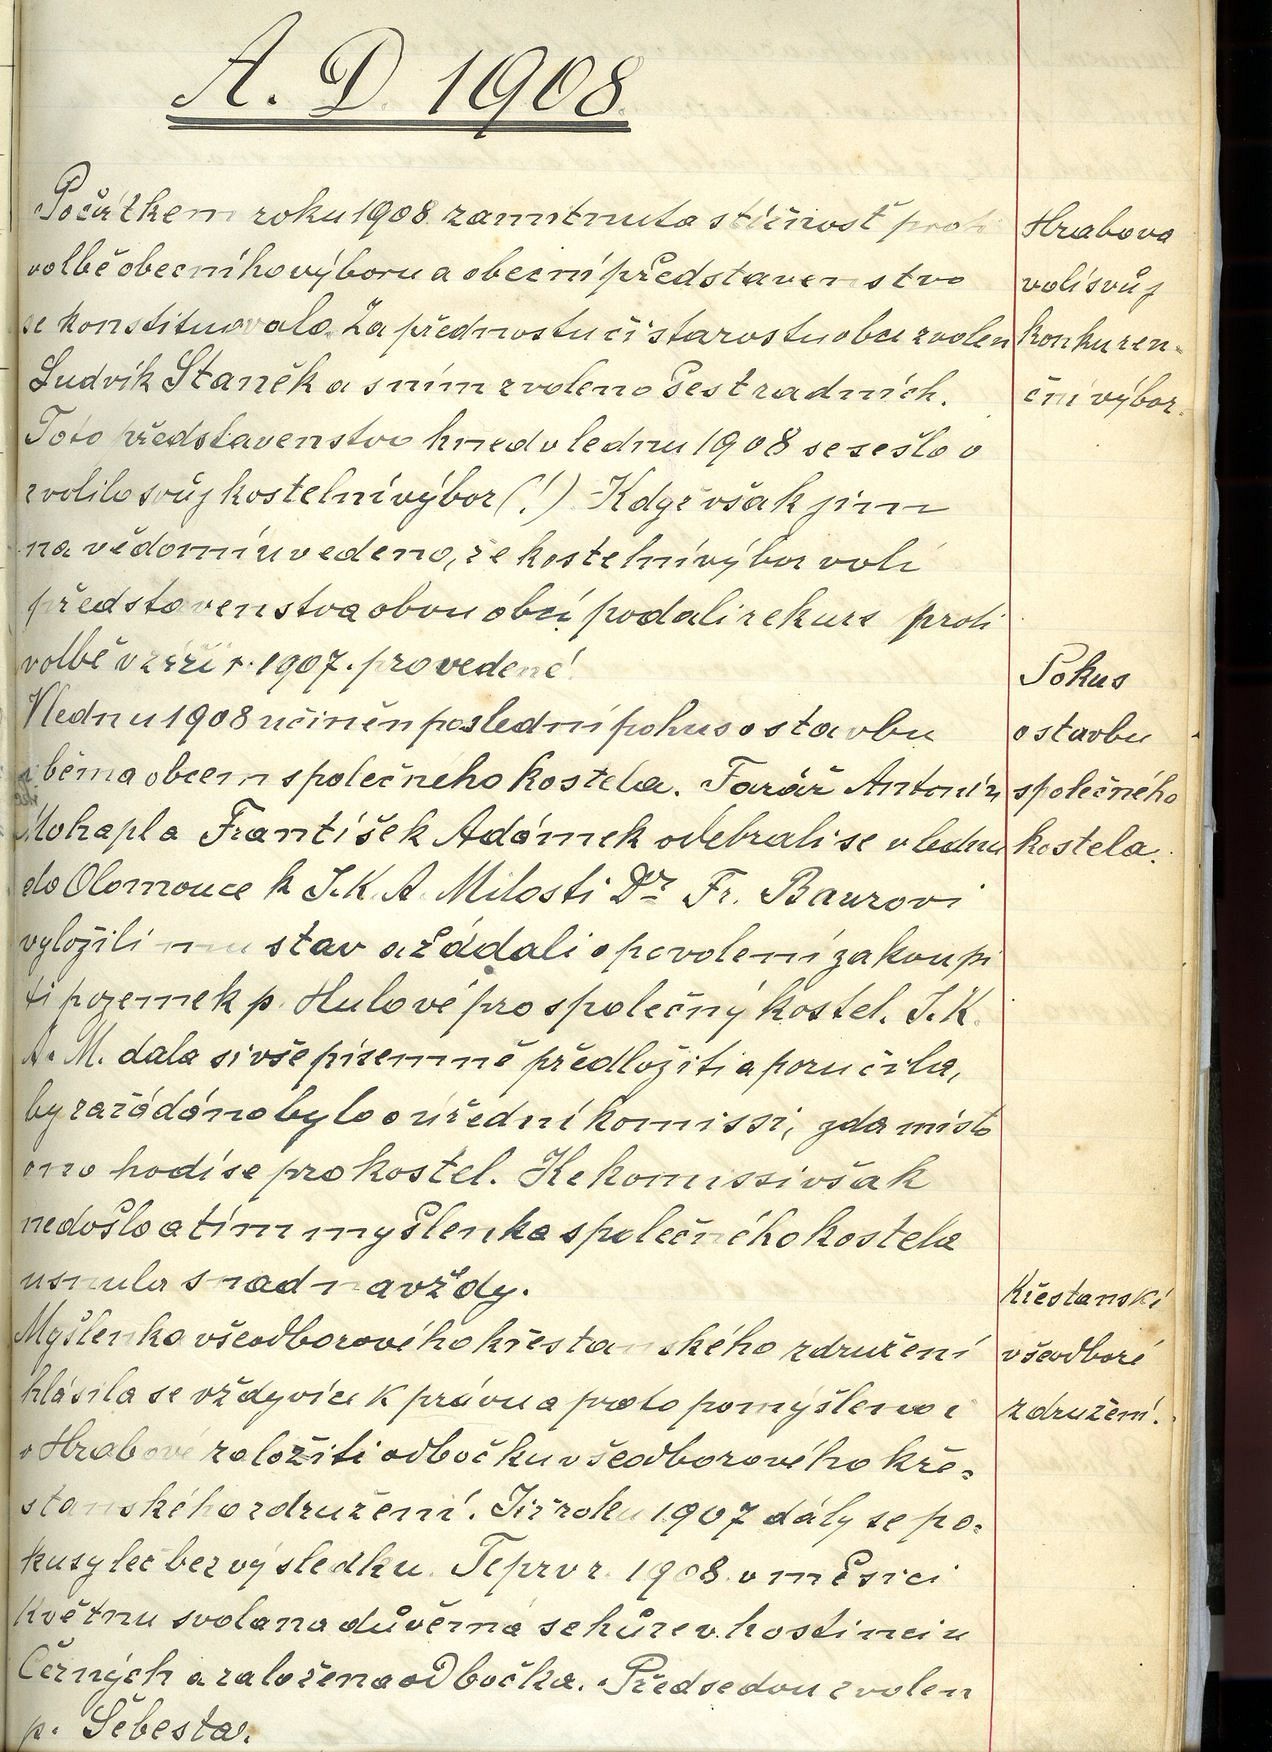 A. D. 1908.
Počátkem roku 1908 zamítnuta stížnosť proti
volbě obecního výboru a obecní představenstvo
se konstituovalo. Za přednostu či starostu obce zvolen
Ludvík Staněk a s ním zvoleno šest radních.
Toto představenstvo hned v lednu 1908 se sešlo a
zvolilo svůj kostelní výbor (!) Když však jim
na vědomí uvedeno, že kostelní výbor volí
představenstva obou obcí podali rekurs proti
volbě v září r. 1907. provedené!
V lednu 1908 učiněn poslední pokus o stavbu
oběma obcem společného kostela. Farář Antonín
Mohapl a František Adámek odebrali se v lednu
do Olomouce k J. K. A. Milosti Dr Fr. Baurovi
vyložili mu stav a žádali o povolení zakoupi
ti pozemek p. Hulové pro společný kostel. J. K.
A. M. dala si vše písemně předložiti a poručila,
by zažádáno bylo o úřední komissi, zda místo
ono hodí se pro kostel. Ke komissi však
nedošlo a tím myšlenka společného kostela
usnula snad navždy.
Myšlenka všeodborového křestanského združení
hlásila se vždy více k právu a proto pomýšleno i
v Hrabové založiti odbočku všeodborového kře-
stanského združení. Již roku 1907 dály se po-
kusy leč bez výsledku. Teprv r. 1908. v měsíci
Květnu svolana důvěrná schůze v hostinci u
Černých a založena odbočka. Předsedou zvolen
p. Šebesta.
Hrabova
volí svůj
konkuren-
ční výbor.
Pokus
o stavbu
společného
kostela.
Křestanské
všeodboré
združení.